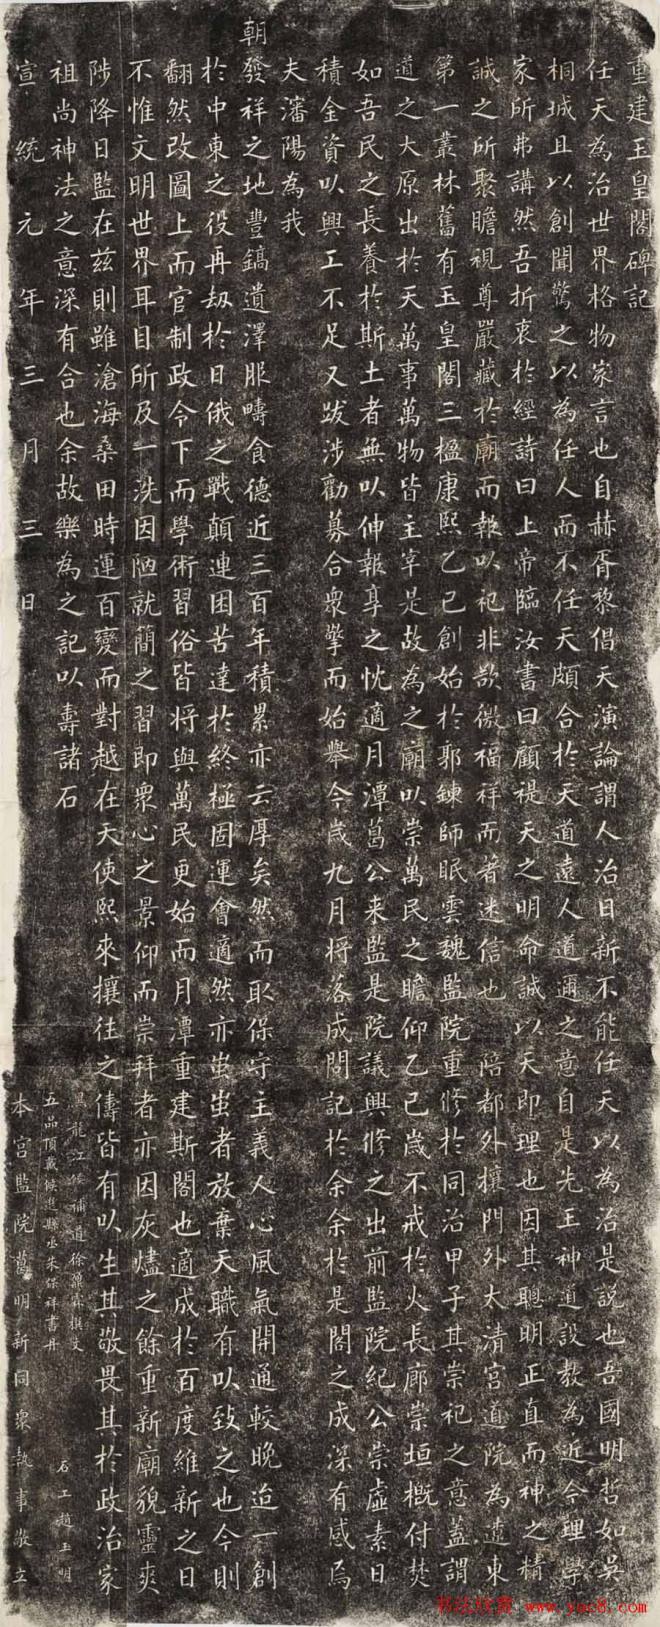 重建玉皇閣碑記
任天為治世界格物家言也自赫胥黎倡天演論謂人治日新不能任天以為治是說也吾國明哲如吳
桐城且以創聞驚之以為任人而不任天頗合於天道遠人道邇之意自是先王神道設教為近今理學
家所弗講然吾折衷於經詩曰上帝臨汝書曰顧諟天之明命誠以天即理也因其聰明正直而神之精
誠之所聚瞻視尊嚴藏於廟而報以祀非欲徼福祥而者迷信也 陪都外攘門外大清宮道院為遼東
第一叢林舊有玉皇閣三楹康熙乙巳創始於郭鍊師眠雲魏監院重修於同治甲子其崇祀之意蓋謂
道之大原出於天萬事萬物皆主宰是故為之廟以崇萬民之瞻仰乙巳歲不戒於火長廊崇垣概付焚
如吾民之長養於斯土者無以伸報享之忱適月潭葛公来監是院議興修之出前監院紀公崇虛素日
積金資以興工不足又跋涉勸募合衆擎而始舉今歲九月将落成問記於余余於是閣之成深有感焉
夫瀋陽為我
朝發祥之地豐鎬遺澤服疇食德近三百年積累亦云厚矣然而耴保守主義人心風氣開通較晚迨一創
於中東之役再刼於日俄之戰顛連困苦達於終極固運會適然亦蚩蚩者放棄天職有以致之也今則
翻然改圖上而官制政令下而學術習俗皆将與萬民更始而月潭重建斯閣也適成於百度維新之日
不惟文明世界耳目所及一洗因陋就簡之習即衆心之景仰而崇拜者亦因灰燼之餘重新廟貌靈爽
陟降日監在兹則雖滄海桑田時運百變而對越在天使熙來攘往之儔皆有以生其敬畏其於政治家
祖尚神法之意深有合也余故樂為之記以壽諸石
黑龍江候補道徐鼐霖撰文
五品頂戴候選縣丞朱保祥書丹 石工趙玉明
宣統元年三月三日 本宮監院葛明新同衆執事敬立
书法欣赏 www.yac8.com